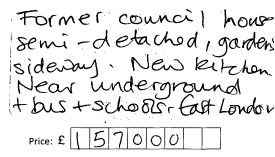 Former council house
semi-detached, gardens
sideway. New kitchen
Near underground
+ bus + schools. East London
Price: £ 157000